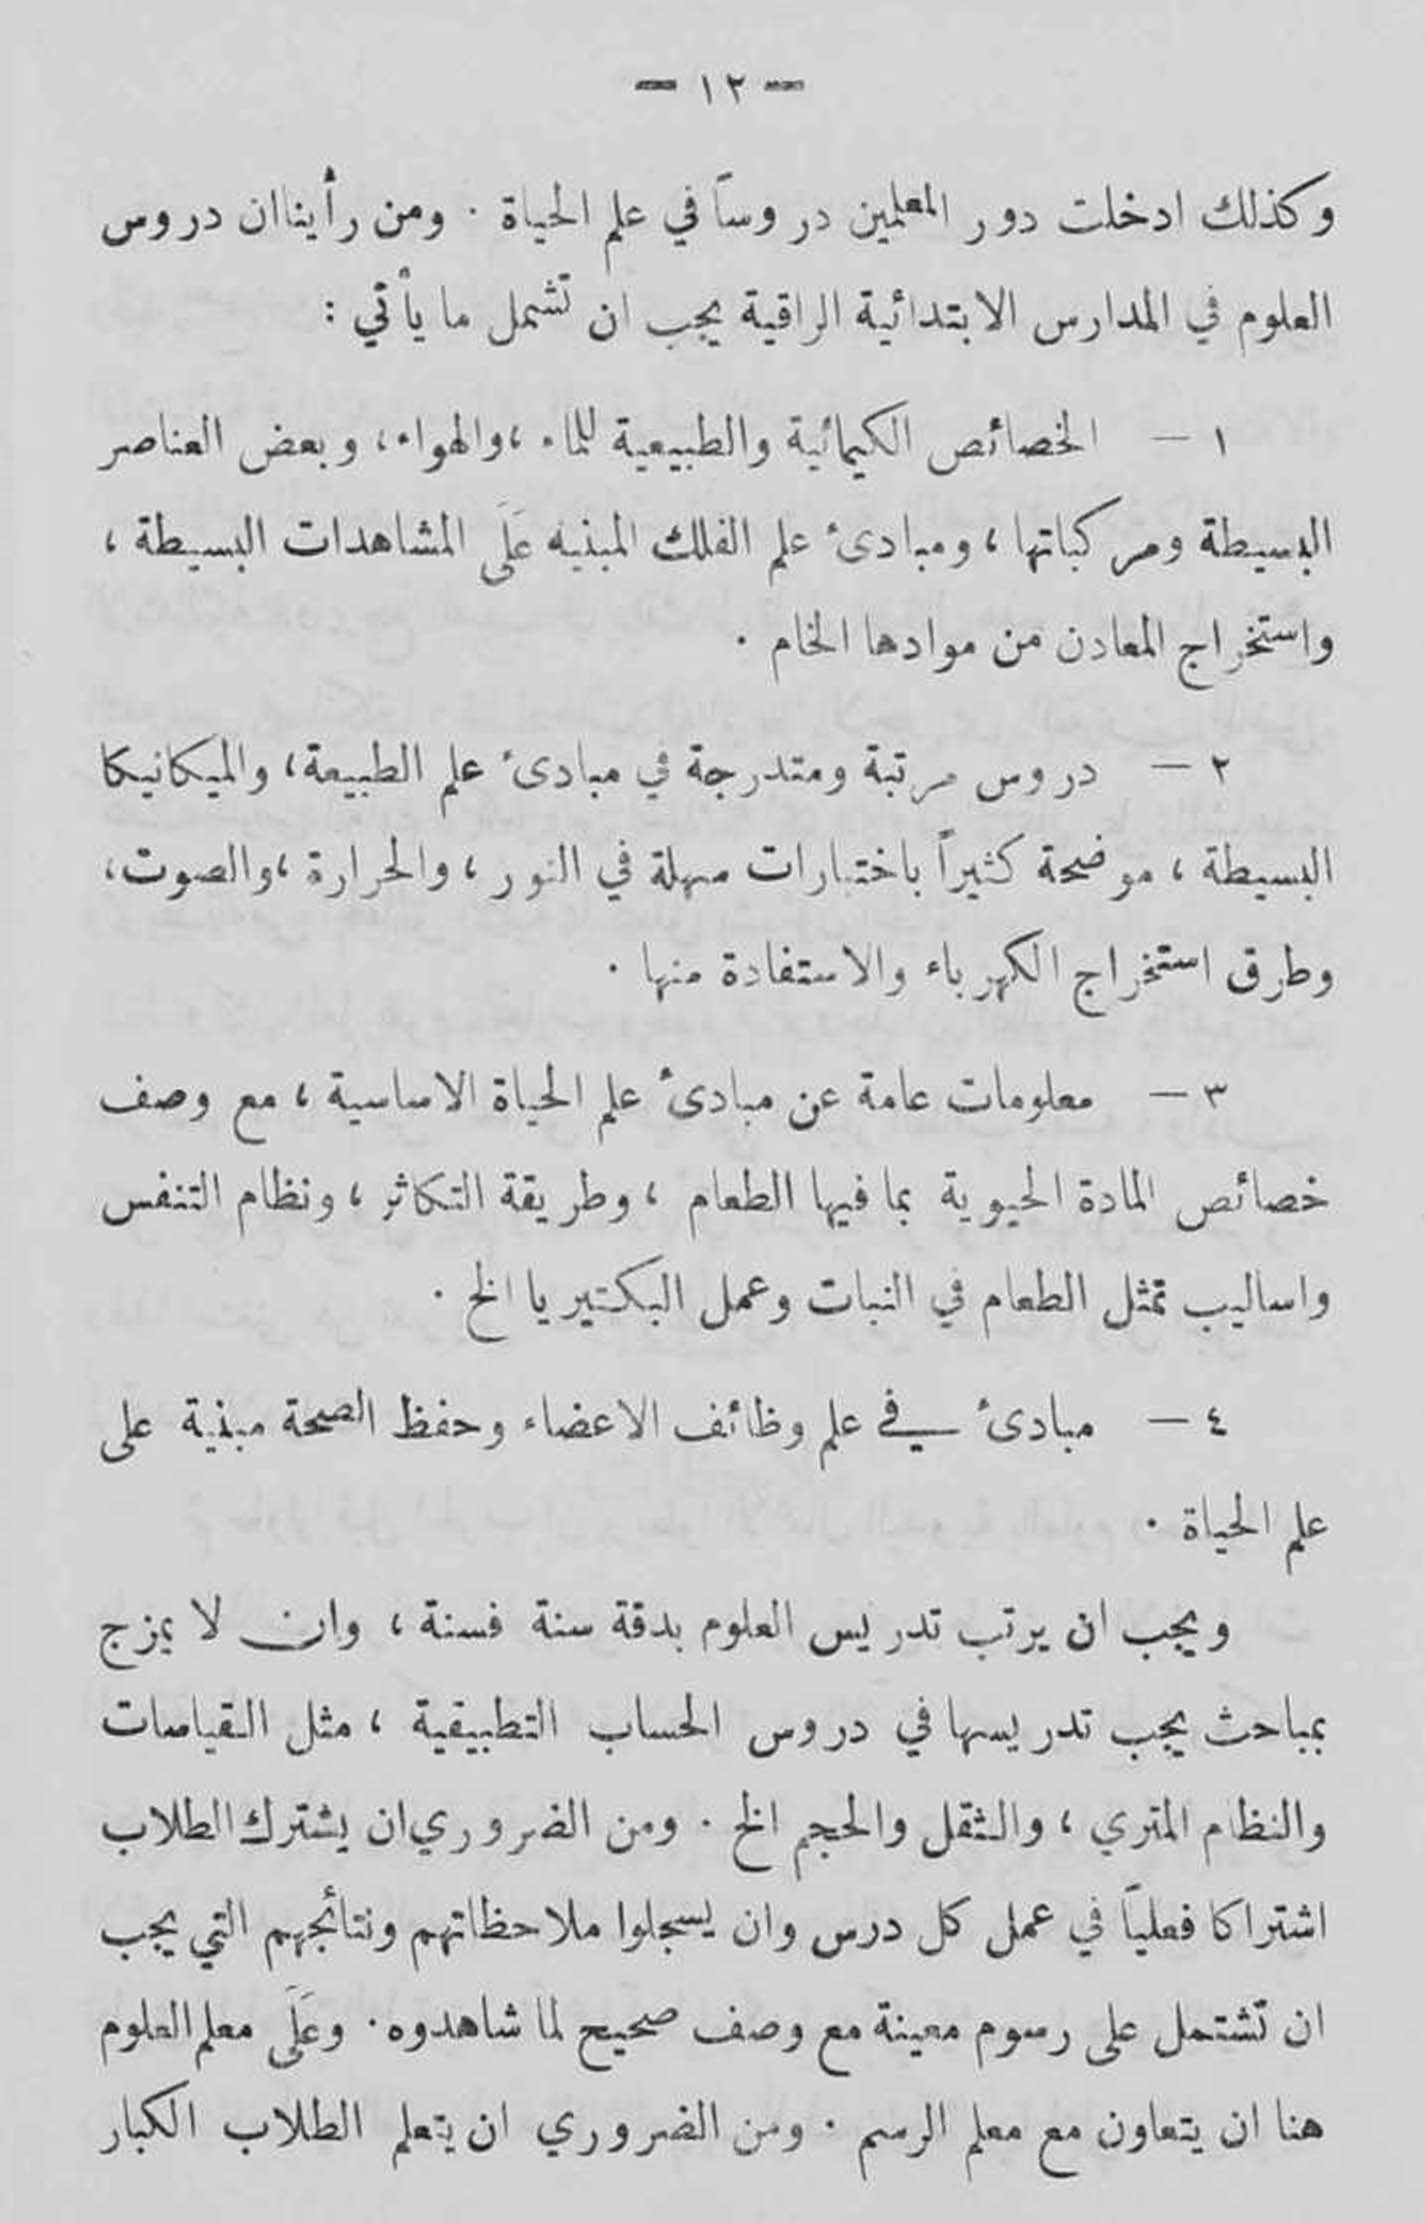 — ١٢ —
وكذلك ادخلت دور المعلمين دروساً في علم الحياة . ومن رأينا ان دروس
العلوم في المدارس الابتدائية الراقية يجب ان تشمل ما يأتي :
١ — الخصائص الكيمائية والطبيعية للماء ، والهواء ، وبعض العناصر
البسيطة ومركباتها ، ومبادئ علم الفلك المبنيه عَلَى المشاهدات البسيطة ،
واستخراج المعادن من موادها الخام .
٢ — دروس مرتبة ومتدرجة في مبادئ علم الطبيعة ، والميكانيكا
البسيطة ، موضحة كثيراً باختبارات سهلة في النور ، والحرارة ، والصوت ،
وطرق استخراج الكهرباء والاستفادة منها .
٣ — معلومات عامة عن مبادئ علم الحياة الاساسية ، مع وصف
خصائص المادة الحيوية بما فيها الطعام ، وطريقة التكاثر ، ونظام التنفس
واساليب تمثل الطعام في النبات وعمل البكتيريا الخ .
٤ — مبادئ في علم وظائف الاعضاء وحفظ الصحة مبنية على
علم الحياة .
ويجب ان يرتب تدريس العلوم بدقة سنة فسنة ، وان لا يمزج
بمباحث يجب تدريسها في دروس الحساب التطبيقية ، مثل القياسات
والنظام المتري ، والثقل والحجم الخ . ومن الضروري ان يشترك الطلاب
اشتراكا فعلياً في عمل كل درس وان يسجلوا ملاحظاتهم ونتائجهم التي يجب
ان تشتمل على رسوم معينة مع وصف صحيح لما شاهدوه . وعَلَى معلم العلوم
هنا ان يتعاون مع معلم الرسم . ومن الضروري ان يتعلم الطلاب الكبار